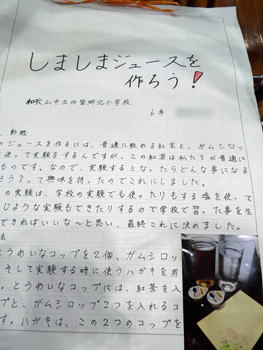 しましまジュースを
作ろう！
和歌山市立四箇郷北小学校
6年
動機
のジュースを作るには、普通に飲める紅茶と、ガムシロッ
使って実験をするんですが、この紅茶は私たちが普通に
ものです。なので、実験するとな、たらどんな事になる
ろう？って興味を持ったのでこれにしました。
の実験は、学校の実験でも使ったりもする塩を使って
じような実験もできたりするので学校で習った事を生
できればいいな〜と思い、最終これに決めました。
法
とうめいなコップを2個、ガムシロッ
そして実験する時に使うハガキを用
。とうめいなコップには、紅茶を入
プと、ガムシロップ2つを入れるコ
す。ハガキは、この2つのコップを